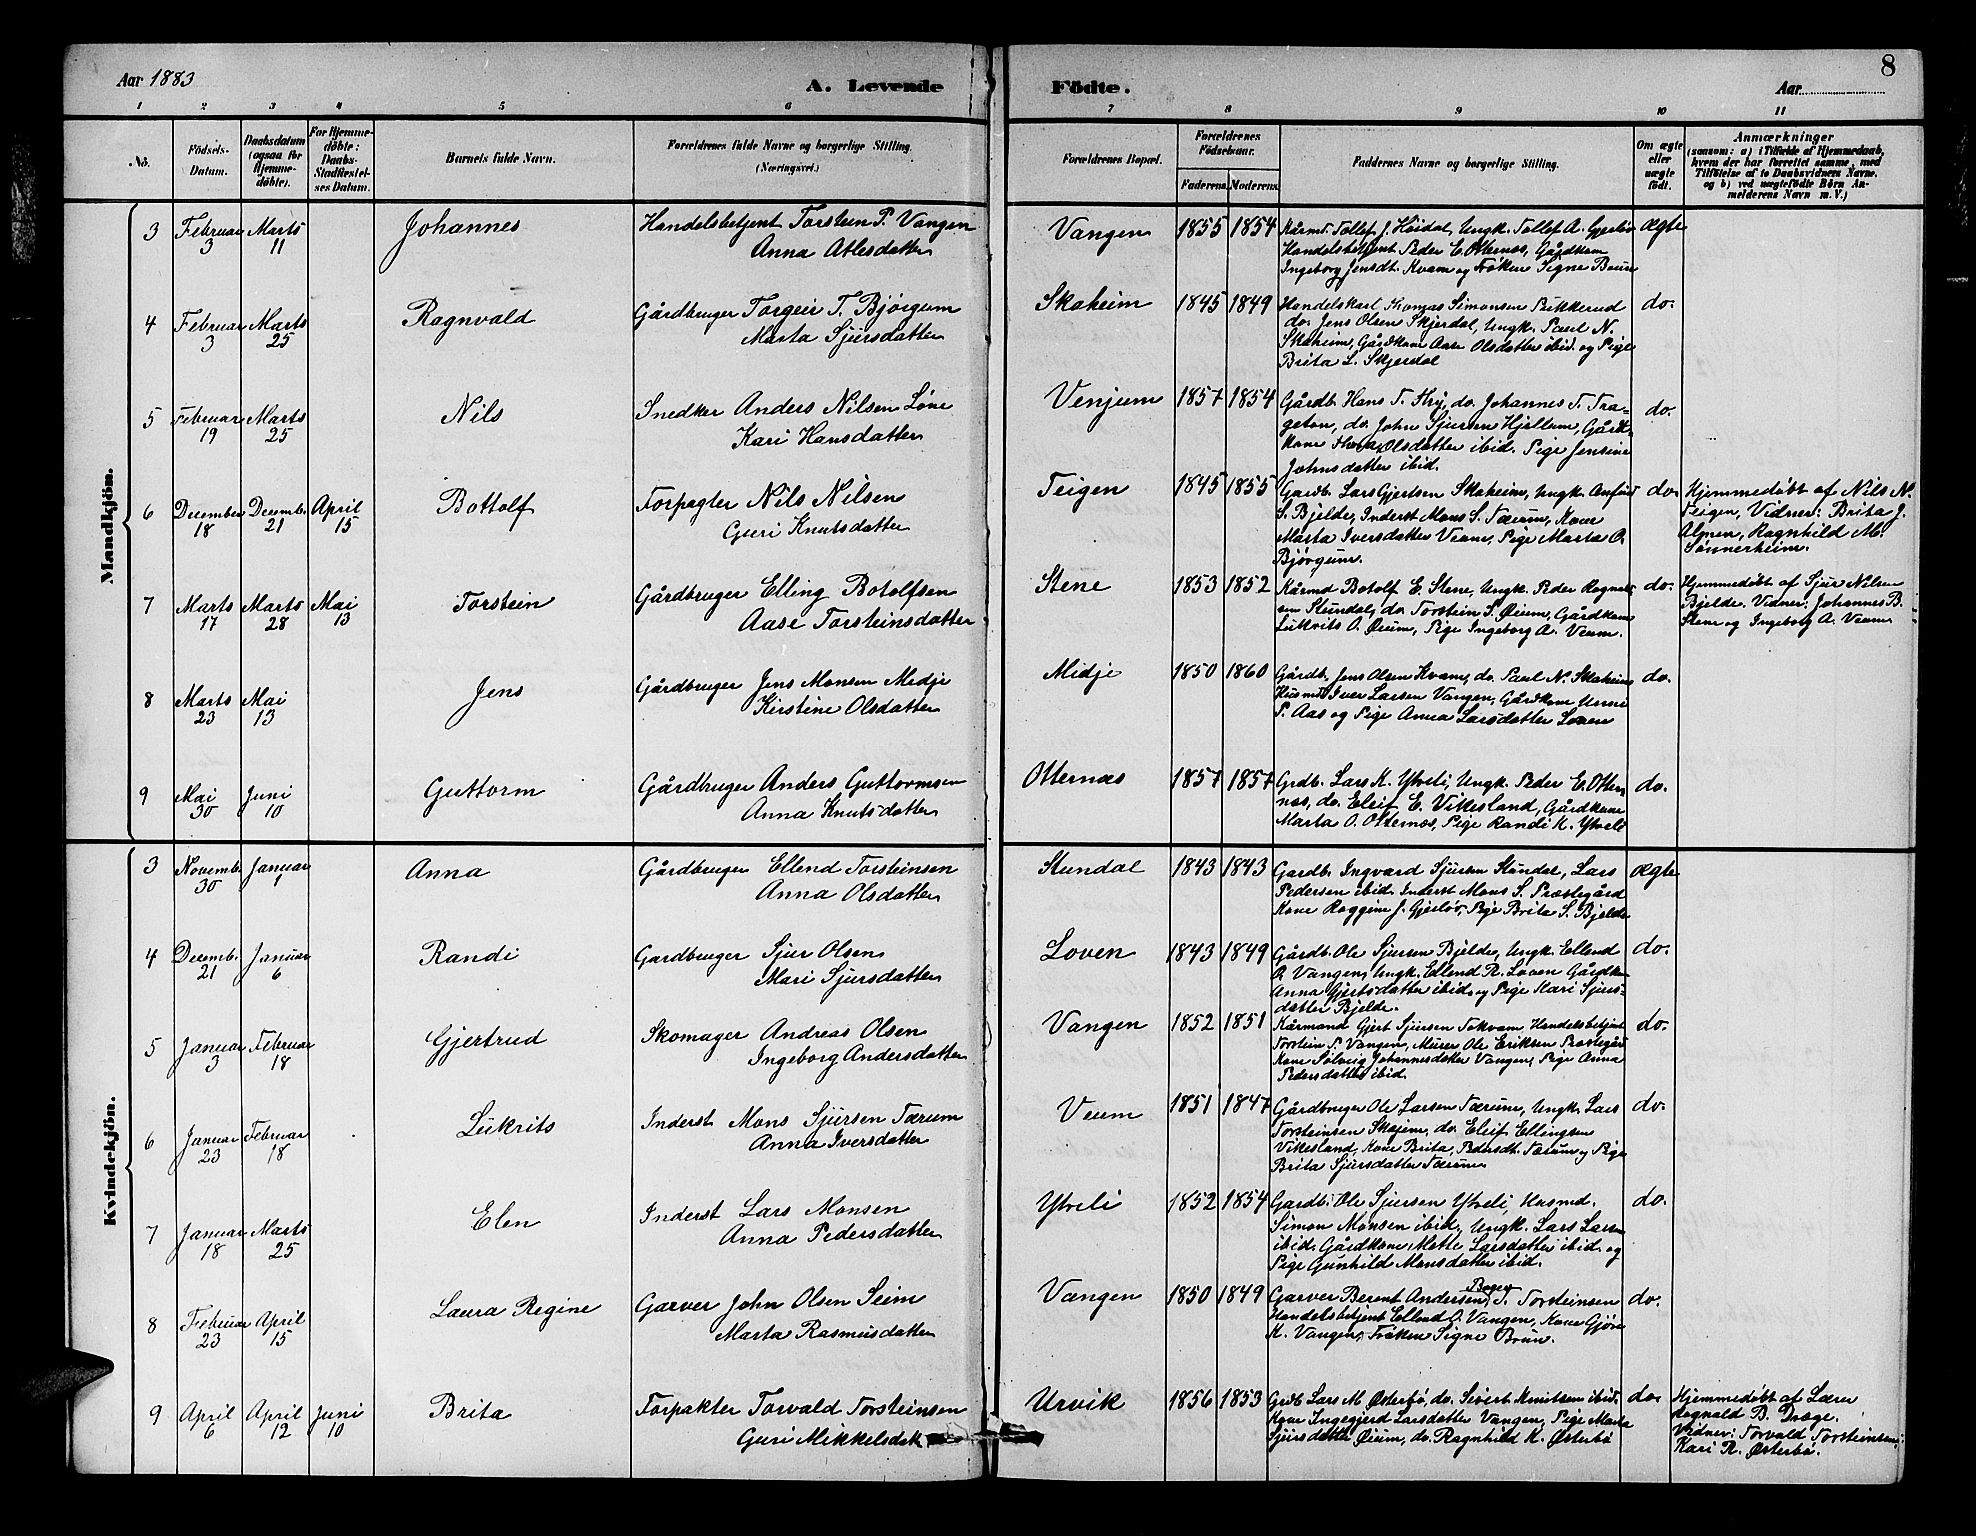 Aar 1883
A. Levende
Födte.
Aar
8
1 2 3 4 5 6 7 8 9 10 11
No.
Födsels-
Datum.
Daabsdatum
(ogsaa for
Hjemme-
döbte).
For Hjemme-
döbte:
Daabs-
Stadfæstel-
ses Datum.
Barnets fulde Navn.
Forældrenes fulde Navne og borgerlige Stilling.
(Næringsvei.)
Forældrenes Bopæl.
Forældrenes
Födselsaar.
Faderens. Moderens.
Faddernes Navne og borgerlige Stilling.
Om ægte
eller
uægte
födt.
Anmærkninger
(saasom: a) i Tilfælde af Hjemmedaab,
hvem der har forrettet samme, med
Tilföielse af to Daabsvidners Navne.
og b) ved uægtefödte Börn An-
melderens Navn m. V.)
Mandkjön.
3 Februar Marts Johannes Handelsbetjent Torstein P. Vangen Vangen 1855 1854 Kårmd. Tollef J. Höidal, Ungk. Tollef A. Gjerløv ægte
3 11 Anna Atlesdatter Handelsbetjent Peder E. Otternes, Gårdkone
Ingeborg Jensdt. Kvam og Frøken Signe Brun
4 Februar Marts Ragnvald Gårdbruger Torgeir T. Bjørgum Skaheim 1845 1849 Handelskarl Thomas Simonsen Bukkerud do.
3 25 Marta Sjursdatter do. Jens Olsen Skjerdal, Ungk. Paul N.
Skaheim, Gårdkone Aase Olsdatter ibid. og Pige
Brita L. Skjerdal
5 Februar Marts Nils Snedker Anders Nilsen Løne Venjum 1857 1854 Gårdb. Hans T. Fry, do. Johannes T. Fra- do.
19 25 Kari Hansdatter geton, do. John Sjursen Hjellum, Gård-
kone Thora Olsdatter ibid. Pige Jensine
Johnsdatter ibid.
6 December Decemb. April Bottolf Forpagter Nils Nilsen Teigen 1845 1855 Gardb. Lars Gjertsen Skaheim, Ungk. Anfind do. Hjemmedøbt af Nils N.
18 21 15 Guri Knutsdatter S. Bjelde, Inderst Mons S. Tærum, Kone Teigen, Vidner: Brita J.
Marta Iversdatter Veum, Pige Marta O. Almen, Ragnhild M.
Bjørgum. Sønnerheim.
7 Marts Marts Mai Torstein Gårdbruger Elling Botolfsen Stene 1853 1852 Kårmd Botolf E. Stene, Ungk. Peder Ragnv- do. Hjemmedøbt af Sjur Nilsen
17 28 13 Aase Torsteinsdatter sen Stundal, do. Torstein S. Øium, Gårdkone Bjelde. Vidner: Johannes B.
Lukrits O. Øium, Pige Ingeborg A. Veum. Stene og Ingeborg A. Veum
8 Marts Mai Jens Gårdbruger Jens Monsen Midje Midje 1850 1860 Gårdb. Jens Olsen Kvam, do. Paul N. Skaheim do.
23 13 Kirstine Olsdatter Husmd Iver Larsen Vangen, Gårdkone Unni
P. Aas og Pige Anna Larsdatter Loven
9 Mai Juni Guttorm Gårdbruger Anders Guttormsen Otternæs 1857 1857 Grdb. Lars K. Ytreli, Ungk. Peder E. Otter- do.
30 10 Anna Knutsdatter næs, do. Eleif E. Vikesland, Gårdkone
Marta O. Otternæs, Pige Randi K. Ytreli
Kvindekjön.
3 Novemb. Januar Anna Gårdbruger Ellend Torsteinsen Stundal 1843 1843 Gardb. Ingvard Sjursen Stundal, Lars ægte
30 1 Anna Olsdatter Pedersen ibid. Inderst Mons S. Præstegård
Kone Raggine J. Gjerløv, Pige Brita S. Bjelde
4 Decemb. Januar Randi Gardbruger Sjur Olsen Loven 1843 1849 Gårdb. Ole Sjursen Bjelde, Ungk. Ellend do.
21 6 Mari Sjursdatter O. Vangen, Ungk. Ellend R. Loven Gårdkone
Anna Gjertsdatter ibid. og Pige Kari Sjurs-
datter Bjelde.
5 Januar Februar Gjertrud Skomager Andreas Olsen Vangen 1852 1851 Kårmand Gjert Sjursen Tokvam, Handelsbetjent do.
3 18 Ingeborg Andersdatter Torstein P. Vangen, Murer Ole Eriksen Prestegård
Kone Sølveig Johannesdatter Vangen, Pige Anna
Pedersdatter ibid.
6 Januar Februar Lukrits Inderst Mons Sjursen Tærum Veum 1851 1847 Gårdbruger Ole Larsen Tærum, Ungk. Lars do.
23 18 Anna Iversdatter Torsteinsen Skajem, do. Eleif Ellingsen
Vikesland, Kone Brita Pedersdt. Tærum og Pige
Brita Sjursdatter Tærum
7 Januar Marts Elen Inderst Lars Monsen Ytreli 1852 1854 Gardb. Ole Sjursen Ytreli, Husmd. do.
18 25 Anna Pedersdatter Simon Monsen ibid, Ungk. Lars Larsen
ibid. Gårdkone Mette Larsdatter ibid. og
Pige Gunhild Monsdatter ibid.
8 Februar April Laura Regine Garver John Olsen Seim Vangen 1850 1849 Garver Berent Andersen, Bager T. Torsteinsen do.
23 15 Marta Rasmusdatter Handelsbetjent Ellend O. Vangen, Kone Gjøri
K. Vangen, Frøken Signe Brun.
9 April April Juni Brita Forpakter Torvald Torsteinsen Urvik 1856 1853 Grdb. Lars M. Østerbø, do. Sivert Knutsen ibid. do. Hjemmedøbt af Lærer
6 12 10 Guri Mikkelsdt. Kone Ingegjerd Larsdatter Vangen, Pige Marta Ragnald B. Drage.
Sjursdatter Øium, do. Ragnhild K. Østerbø Vidner: Torvald Torsteinsen,
Kari R. Østerbø.